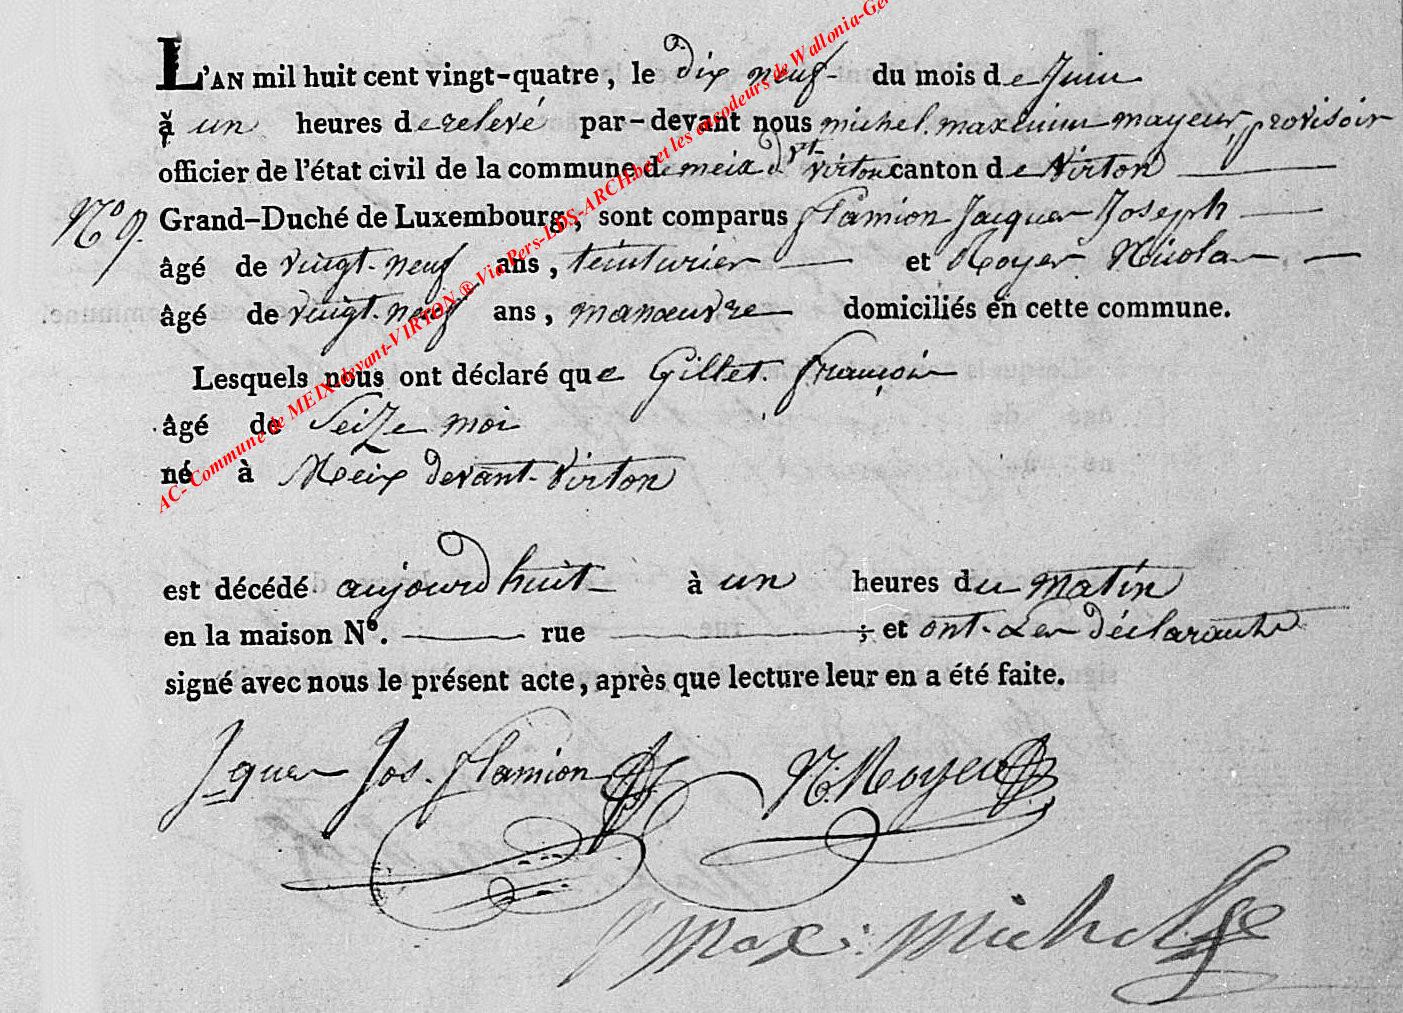 L'AN mil huit cent vingt-quatre, le dix neuf du mois de Juin
à un heures de relevé par-devant nous michel maximin mayeur provisoir
officier de l'état civil de la commune de meix dvt virton canton de Virton
N° 9. Grand-Duché de Luxembourg, sont comparus flamion Jacques Joseph
âgé de vingt-neuf ans, teinturier et Royer Nicolas
âgé de vingt-neuf ans, manœuvre domiciliés en cette commune.
Lesquels nous ont déclaré que Gillet François
âgé de Seize moi
né à Meix devant-Virton
est décédé aujourd huit à un heures du matin
en la maison N°. rue ; et ont Les déclarants
signé avec nous le présent acte, après que lecture leur en a été faite.
Jques Jos. flamion N: Royer
Max: Michel
AC-Commune de MEIX-devant-VIRTON ® Via Pers-LDS-ARCH.be et les encodeurs de Wallonia-Ge